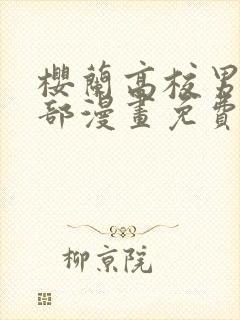 櫻蘭高校男
部漫畫免費
柳京院